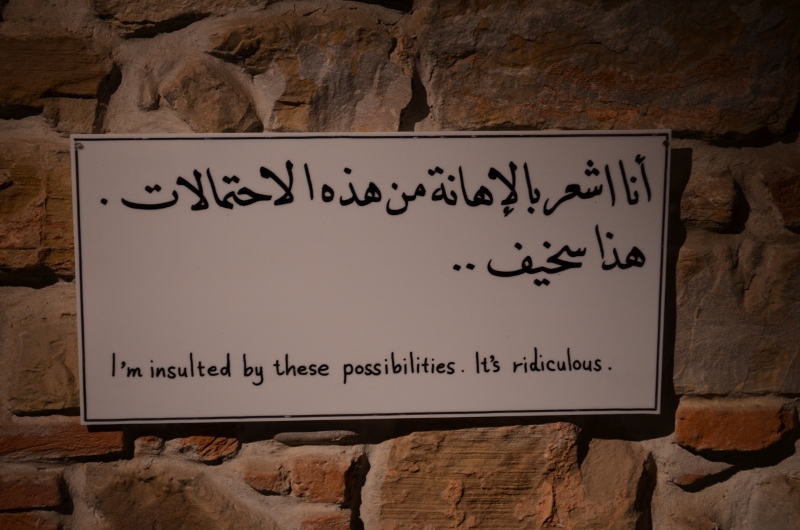 أنا اشعر بالإهانة من هذه الاحتمالات .
هذا سخيف ..
I'm insulted by these possibilities. It's ridiculous.